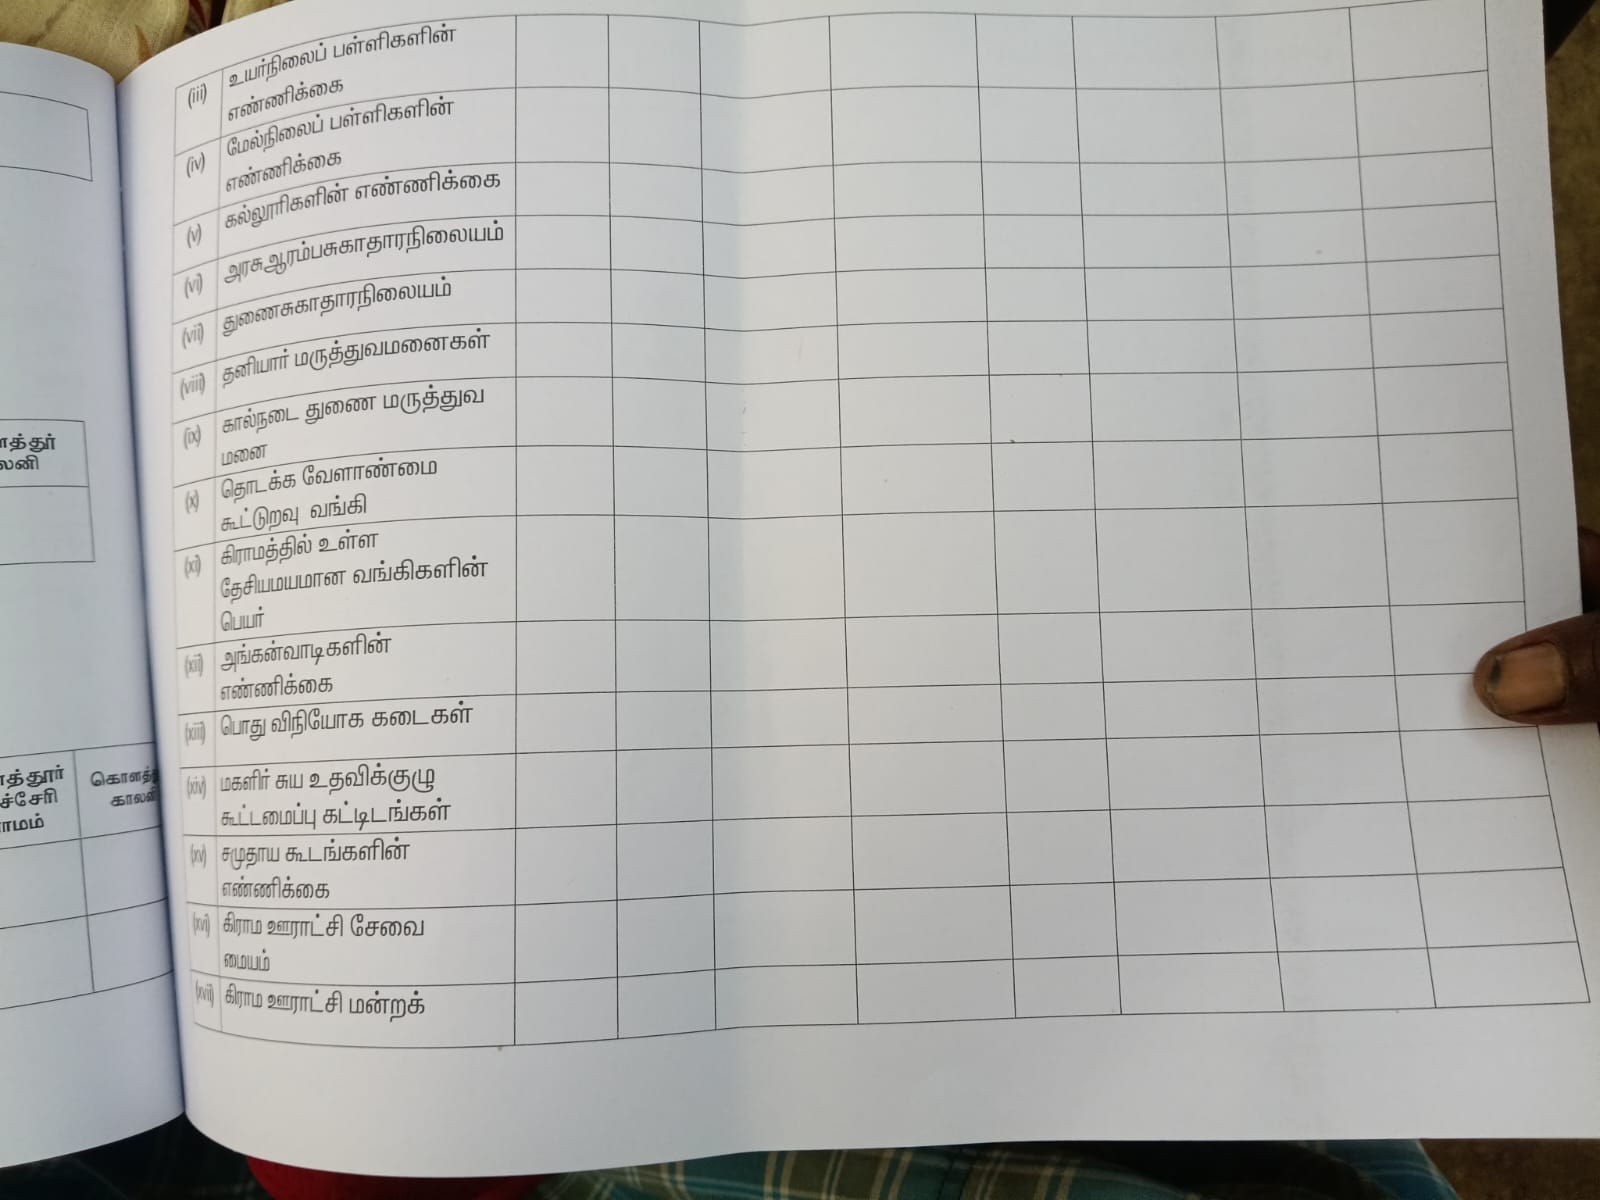 த்தூர்
லனி
த்தூர்
ச்சேரி
ராமம்
கொளத்
காலனி
(iii) உயர்நிலைப் பள்ளிகளின்
எண்ணிக்கை
(iv) மேல்நிலைப் பள்ளிகளின்
எண்ணிக்கை
(v) கல்லூரிகளின் எண்ணிக்கை
(vi) அரசுஆரம்பசுகாதாரநிலையம்
(vii) துணைசுகாதாரநிலையம்
(viii) தனியார் மருத்துவமனைகள்
(ix) கால்நடை துணை மருத்துவ
மனை
(x) தொடக்க வேளாண்மை
கூட்டுறவு வங்கி
(xi) கிராமத்தில் உள்ள
தேசியமயமான வங்கிகளின்
பெயர்
(xii) அங்கன்வாடிகளின்
எண்ணிக்கை
(xiii) பொது விநியோக கடைகள்
(xiv) மகளிர் சுய உதவிக்குழு
கூட்டமைப்பு கட்டிடங்கள்
(xv) சமுதாய கூடங்களின்
எண்ணிக்கை
(xvi) கிராம ஊராட்சி சேவை
மையம்
(xvii) கிராம ஊராட்சி மன்றக்